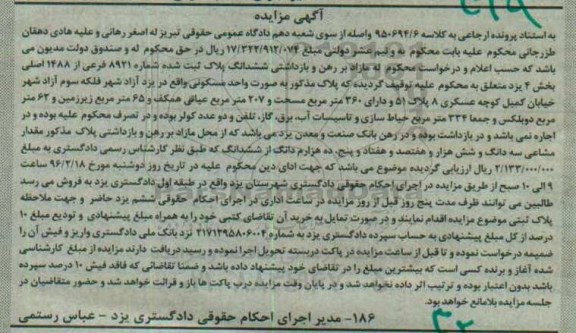 آگهی مزایده
به استناد پرونده ارجاعی به کلاسه ۹۵۰۶۹۴/۶ واصله از سوی شعبه دهم دادگاه عمومی حقوقی تبریز له اصغر رهائی و علیه هادی دهقان
طزرجانی محکوم علیه بابت محکوم به و نیم عشر دولتی مبلغ ۱۷/۳۲۲/۹۱۲/۰۷۴ ریال در حق محکوم له و صندوق دولت مدیون می
باشد که حسب اعلام و درخواست محکوم له مازاد بر رهن و بازداشتی ششدانگ پلاک ثبت شده شماره ۸۹۲۱ فرعی از ۱۴۸۸ اصلی
بخش ۴ یزد متعلق به محکوم علیه توقیف گردیده که پلاک مذکور به صورت واحد مسکونی واقع در یزد آزاد شهر فلکه سوم آزاد شهر
خیابان کمیل کوچه عسکری ۸ پلاک ۵۱ و دارای ۳۶۰ متر مربع مساحت و ۲۰۷ متر مربع اعیانی همکف و ۶۵ متر مربع زیرزمین و ۶۲ متر
مربع دوبلکس و جمعا ۳۳۴ متر مربع حیاط سازی و تاسیسات آب، برق، گاز، تلفن و دو عدد کولر بوده و در تصرف محکوم علیه بوده و در
اجاره نمی باشد و در بازداشت بوده و در رهن بانک صنعت و معدن یزد می باشد که از محل مازاد بر رهن و بازداشتی پلاک مذکور مقدار
مشاعی سه دانگ و شش هزار و هفتصد و هفتاد و پنج، ده هزارم دانگ از ششدانگ که طبق نظر کارشناس رسمی دادگستری به مبلغ
۲/۱۳۳/۰۰۰/۰۰۰ ریال ارزیابی گردیده موضوع می باشد که جهت ادای دین محکوم علیه در تاریخ روز دوشنبه مورخ ۹۶/۲/۱۸ ساعت
۹ الی ۱۰ صبح از طریق مزایده در اجرای احکام حقوقی دادگستری شهرستان یزد واقع در طبقه اول دادگستری یزد به فروش می رسد
طالبین می توانند ظرف مدت پنج روز قبل از روز مزایده در ساعت اداری در اجرای احکام حقوقی ششم یزد حاضر و جهت ملاحظه
پلاک ثبتی موضوع مزایده اقدام نمایند و در صورت تمایل به خرید آن تقاضای کتبی خود را به همراه مبلغ پیشنهادی و تودیع مبلغ ۱۰
درصد از کل مبلغ پیشنهادی به حساب سپرده دادگستری یزد به شماره ۲۱۷۱۲۹۵۸۰۶۰۰۴ نزد بانک ملی دادگستری واریز و فیش آن را
ضمیمه درخواست نموده و تا قبل از ساعت مزایده در پاکت دربسته تحویل اجرا نموده و رسید دریافت دارند مزایده از مبلغ کارشناسی
شده آغاز و برنده کسی است که بیشترین مبلغ را در تقاضای خود پیشنهاد داده باشد و ضمنا تقاضائی که فاقد فیش ۱۰ درصد سپرده
باشد بدون اعتبار بوده و ترتیب اثر داده نخواهد شد و در پایان وقت مزایده درب پاکت ها باز و قرائت خواهد شد و حضور متقاضیان در
جلسه مزایده بلامانع خواهد بود.
۱۸۶- مدیر اجرای احکام حقوقی دادگستری یزد - عباس رستمی